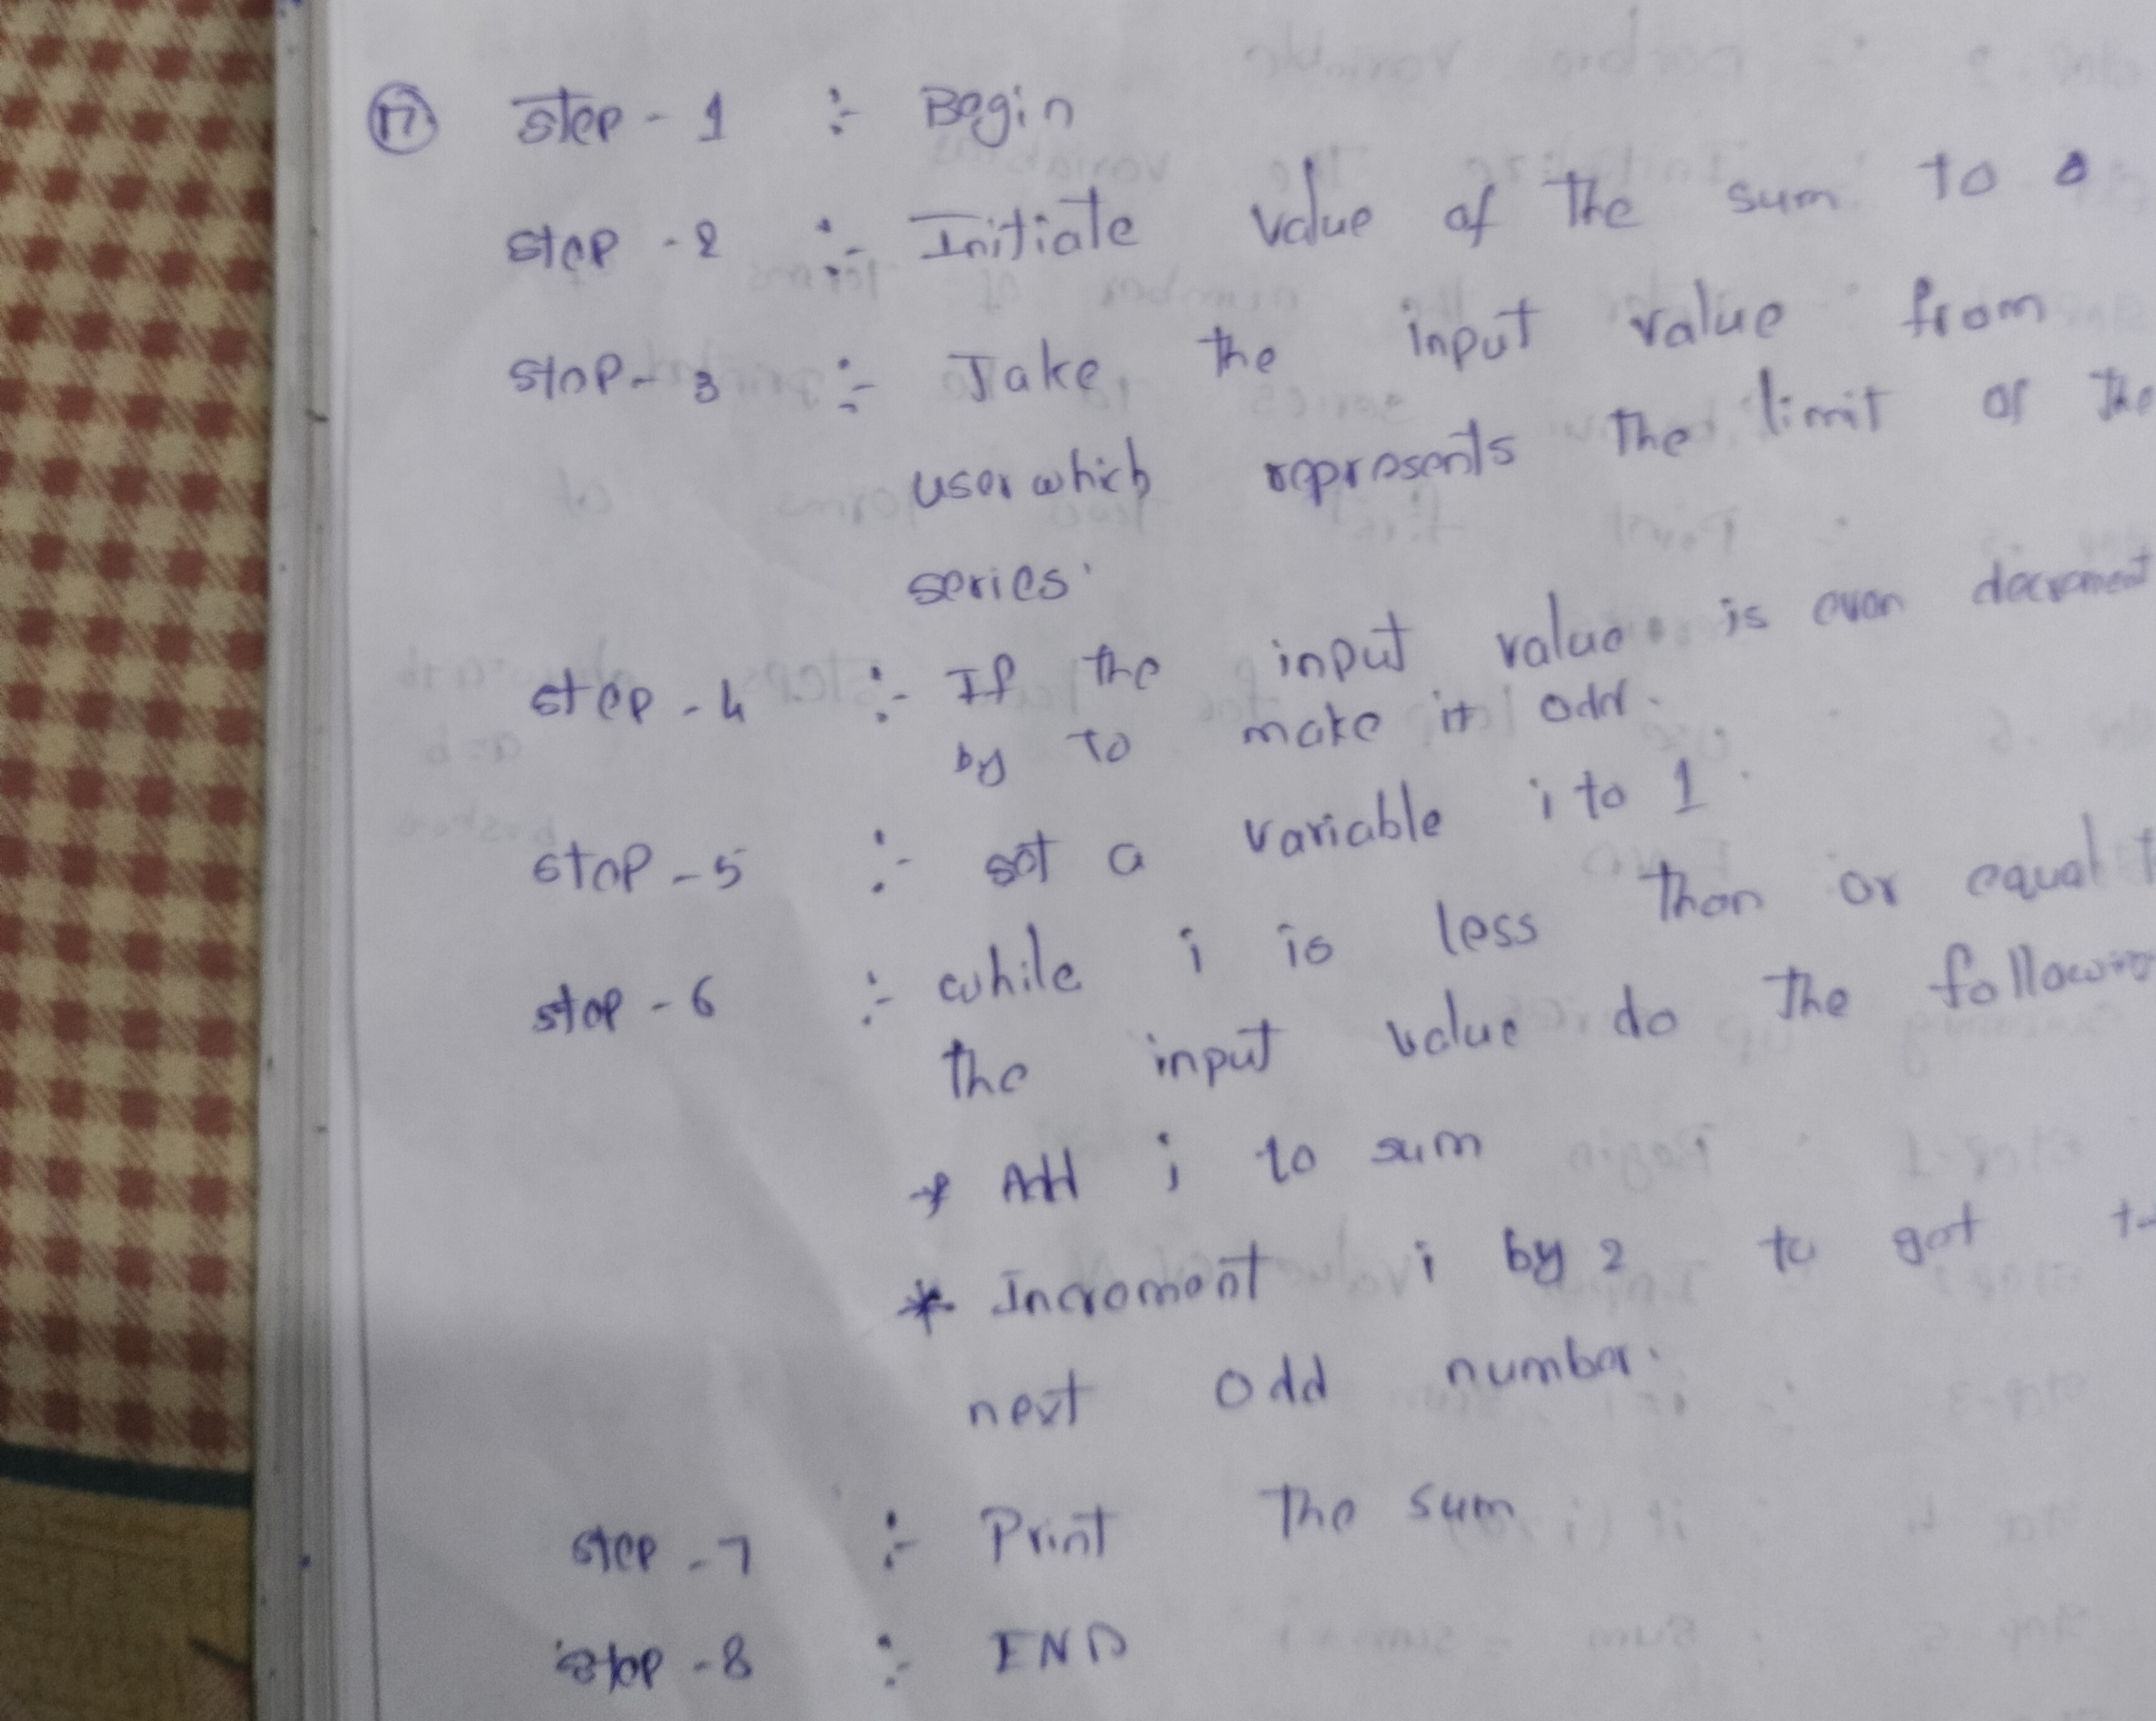 17 Step - 1 :- Begin
Step - 2 :- Initiate value of the sum to 0
Step - 3 :- Take the input value from
user which represents the limit of the
series.
Step - 4 :- If the input value is even decrement
by to make it odd.
Step - 5 :- set a variable i to 1.
Step - 6 :- while i is less than or equal
the input value do the
* Add i to sum
* Increment i by 2 to get
next odd number.
Step - 7 :- Print the sum
Step - 8 :- END